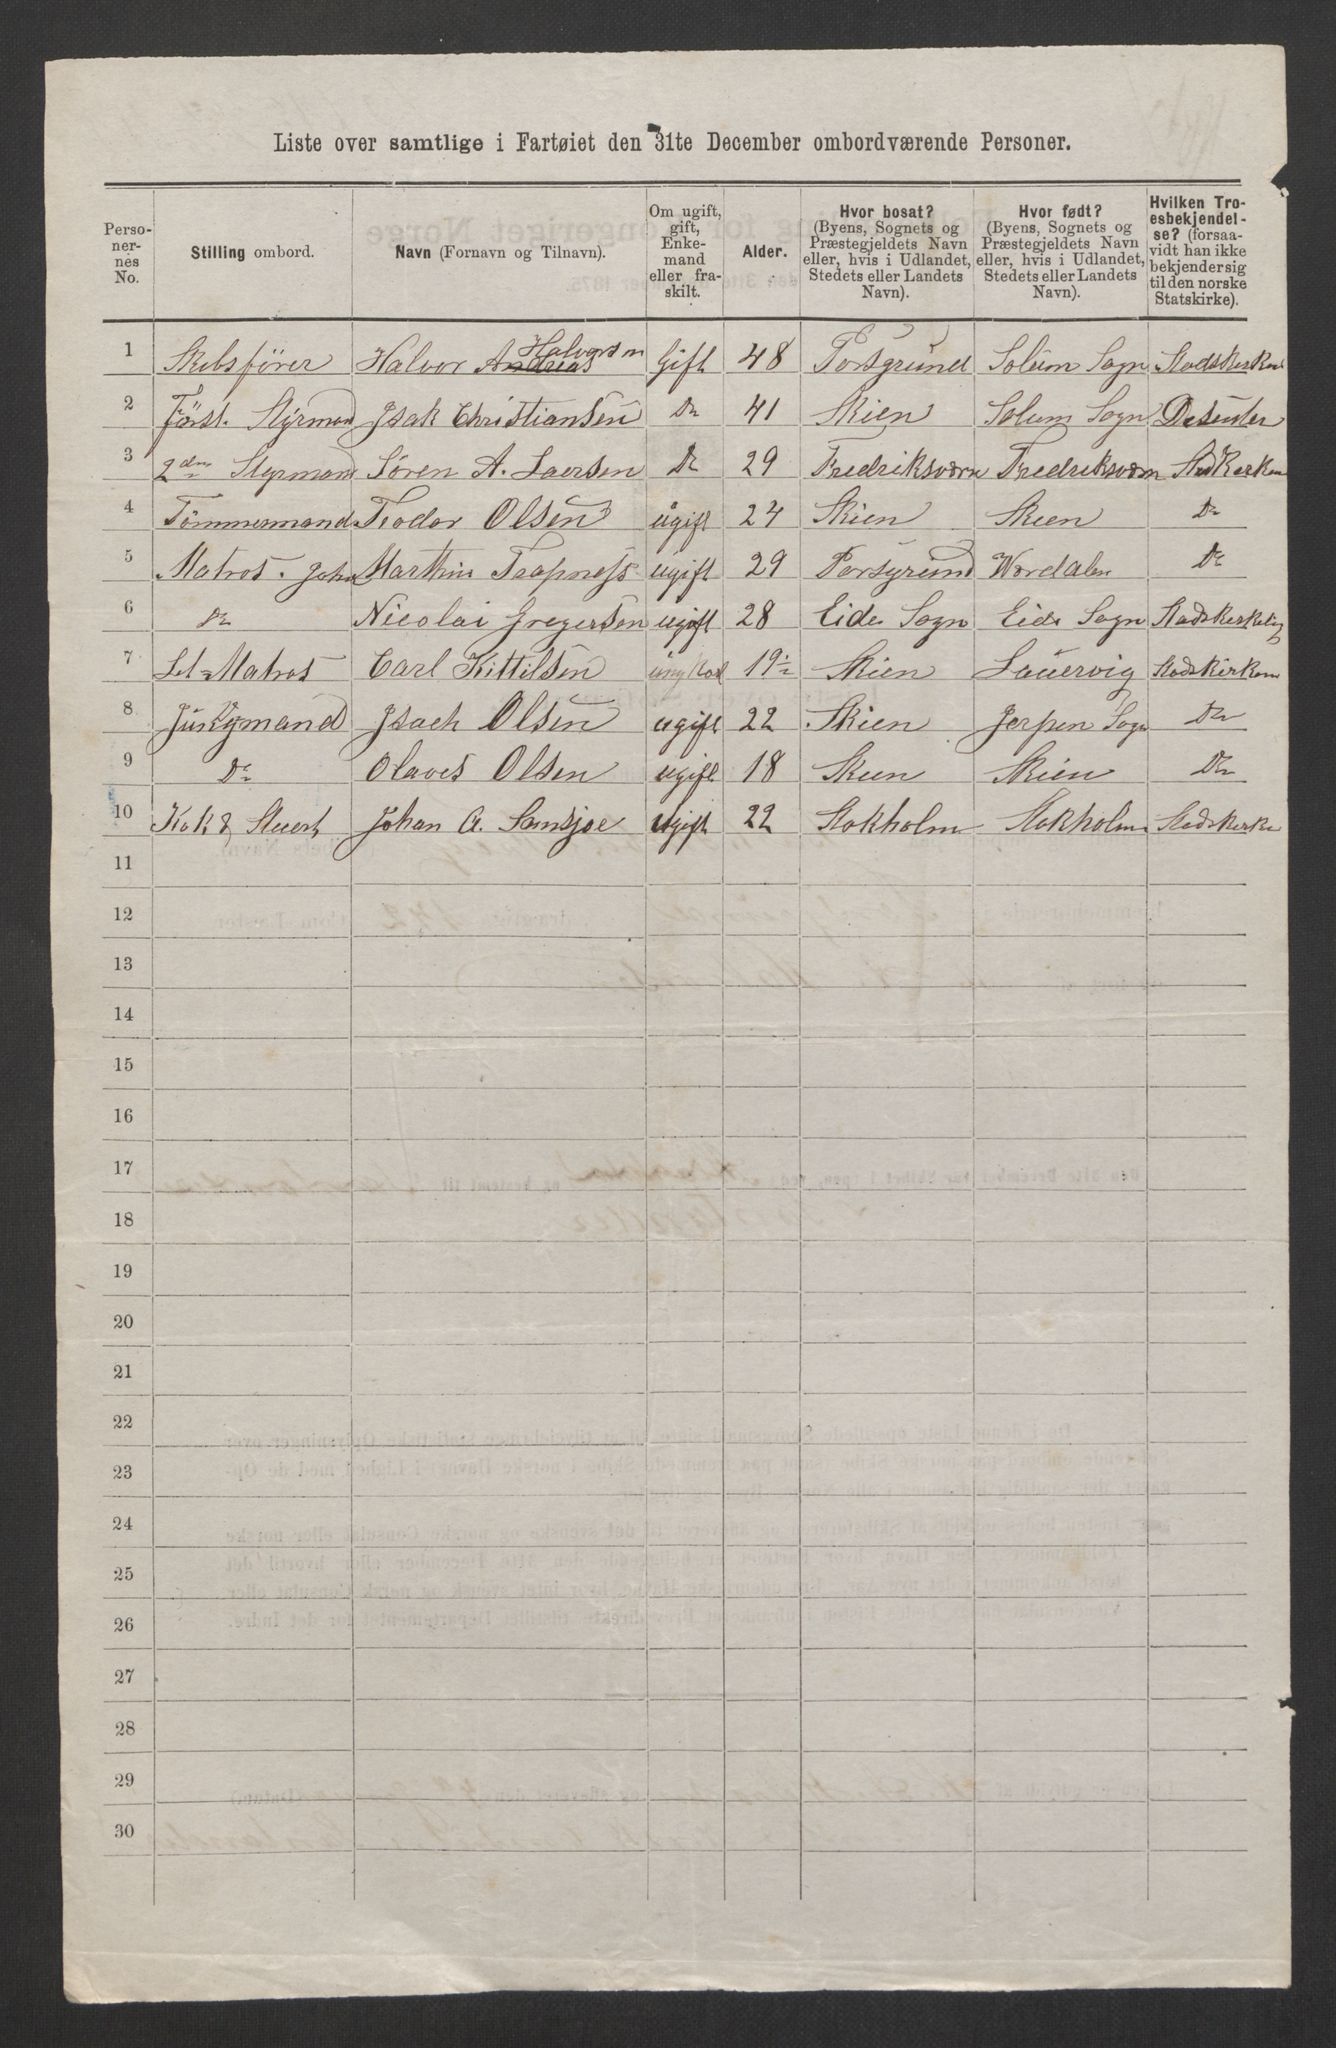 Liste over samtlige i Fartøiet den 31te December ombordværende Personer.
Personernes No. | Stilling ombord. | Navn (Fornavn og Tilnavn). | Om ugift, gift, Enkemand eller fraskilt. | Alder. | Hvor bosat? (Byens, Sognets og Præstegjeldets Navn eller, hvis i Udlandet, Stedets eller Landets Navn). | Hvor født? (Byens, Sognets og Præstegjeldets Navn eller, hvis i Udlandet, Stedets eller Landets Navn). | Hvilken Troesbekjendelse? (forsaavidt han ikke bekjender sig til den norske Statskirke).
1 Skibsfører Halvor Andreas Halvorsen Gift 48 Porsgrund Solum Sogn Stadskirken
2 Först. Styrmand Isak Christiansen Do 41 Skien Solum Sogn Desenter
3 2den Styrmand Sören A. Laersen Do 29 Fredriksværn Fredriksværn Stadkerken
4 Tömmermand Teodor Olsen ugift 24 Skien Skien Do
5 Matros. John Marthin ugift 29 Porsgrund Wærdalen Do
6 Do Nicolai Gregersen ugift 28 Eide Sogn Eide Sogn
7 Let Matros Carl Kittilsen ungkarl 19½ Skien Lauervig Stadskirken
8 Jungmand Isach Olsen ugift 22 Skien Jerpen Sogn Do
9 Do Olaves Olsen ugift 18 Skien Skien Do
10 Kok & Stuert Johan A. ugift 22 Stokholm Stokholm Stadskerke
11
12
13
14
15
16
17
18
19
20
21
22
23
24
25
26
27
28
29
30